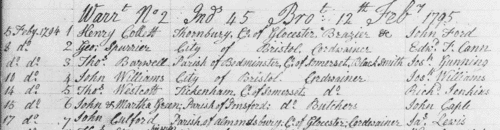 Warrt. No 2 Ind 45 Brot. 12th Feby 1795
5 Feby. 1794 1 Henry Collett Thornbury, C. of Glocester Brazier & John Ford
8 do. 2 Geo. Spurrier City of Bristol Cordwainer Edwd. T. Cann
do do. 3 Thos. Barwell Parish of Bedminster, C. of Somerset, Black Smith Jos. Gunning
10 do. 4 John Williams City of Bristol. Cordwainer Jos. Williams
14 do 5 Thos. Westcott Tickenham, C. of Somerset, do Richd. Jenkins
16 do 6 John & Martha Green; Parish of do. Butchers John Caple
17 do. 7 John Parish of Almondsbury, C. of Glocester; Cordwainer Jas. Lewis